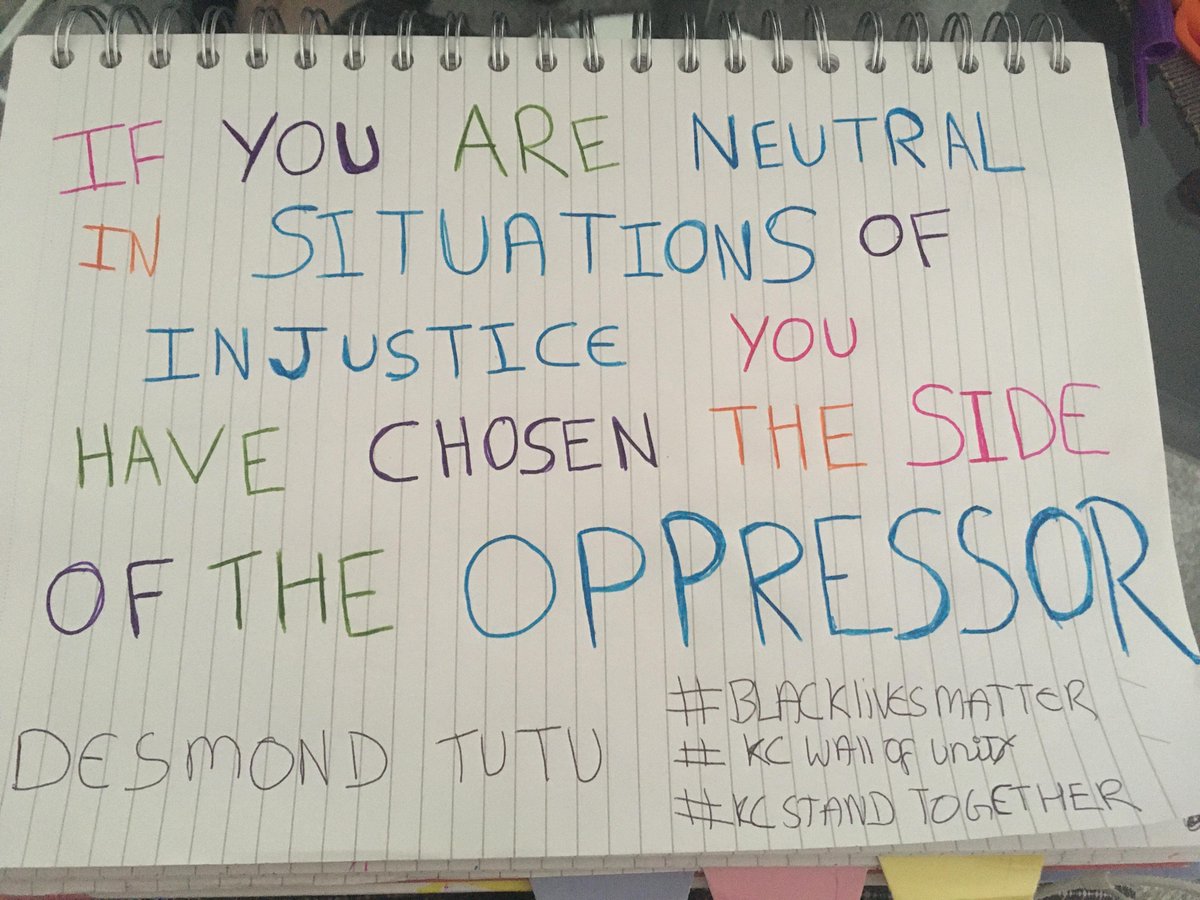 IF YOU ARE NEUTRAL
IN SITUATIONS OF
INJUSTICE YOU
HAVE CHOSEN THE SIDE
OF THE OPPRESSOR
DESMOND TUTU
#BLACKlIVESMATTER
# KC WAll of UNITY
#KC STAND TOGETHER